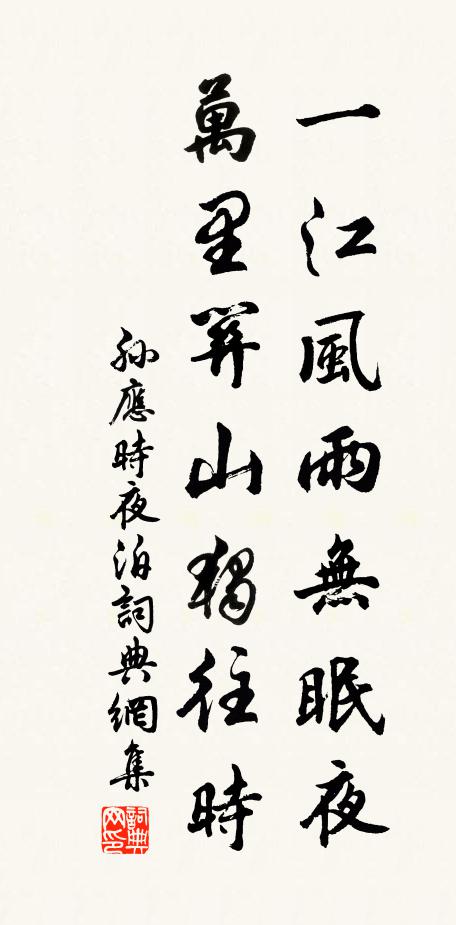 一江風雨無眠夜
萬里關山獨往時
孫應時夜泊詞典網集
詞典
网印